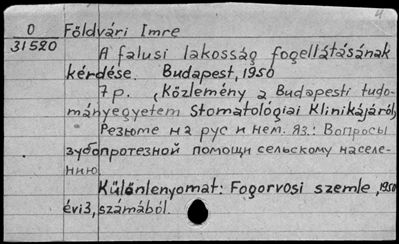 4
0 Földvári Imre
31520
A falusi lakosság fogellátásának
kérdése. Budapest, 1950
7 p. (Közlemény a Budapesti tudo-
mányegyetem Stomatológiai Klinikájáról)
Резюме на рус и нем. яз.: Вопросы
зубопротезной помощи сельскому населе-
нию
Különlenyomat: Fogorvosi szemle, 1950
évi 3, számából.